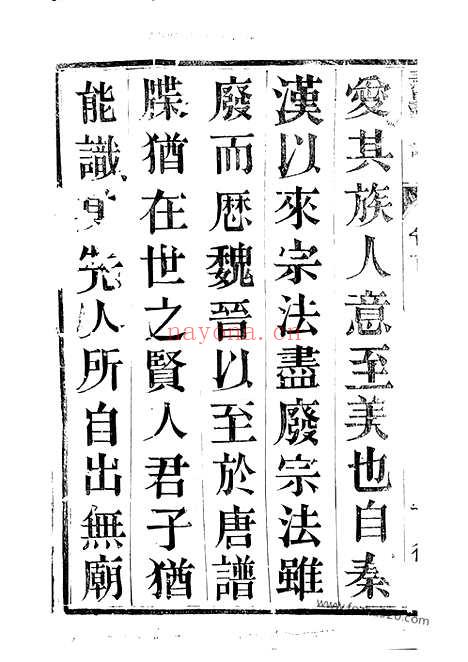 愛其族人意至美也自秦
漢以來宗法盡廢宗法雖
廢而歷魏晉以至於唐譜
牒猶在世之賢人君子猶
能識其先人所自出無廟
nayona.cn